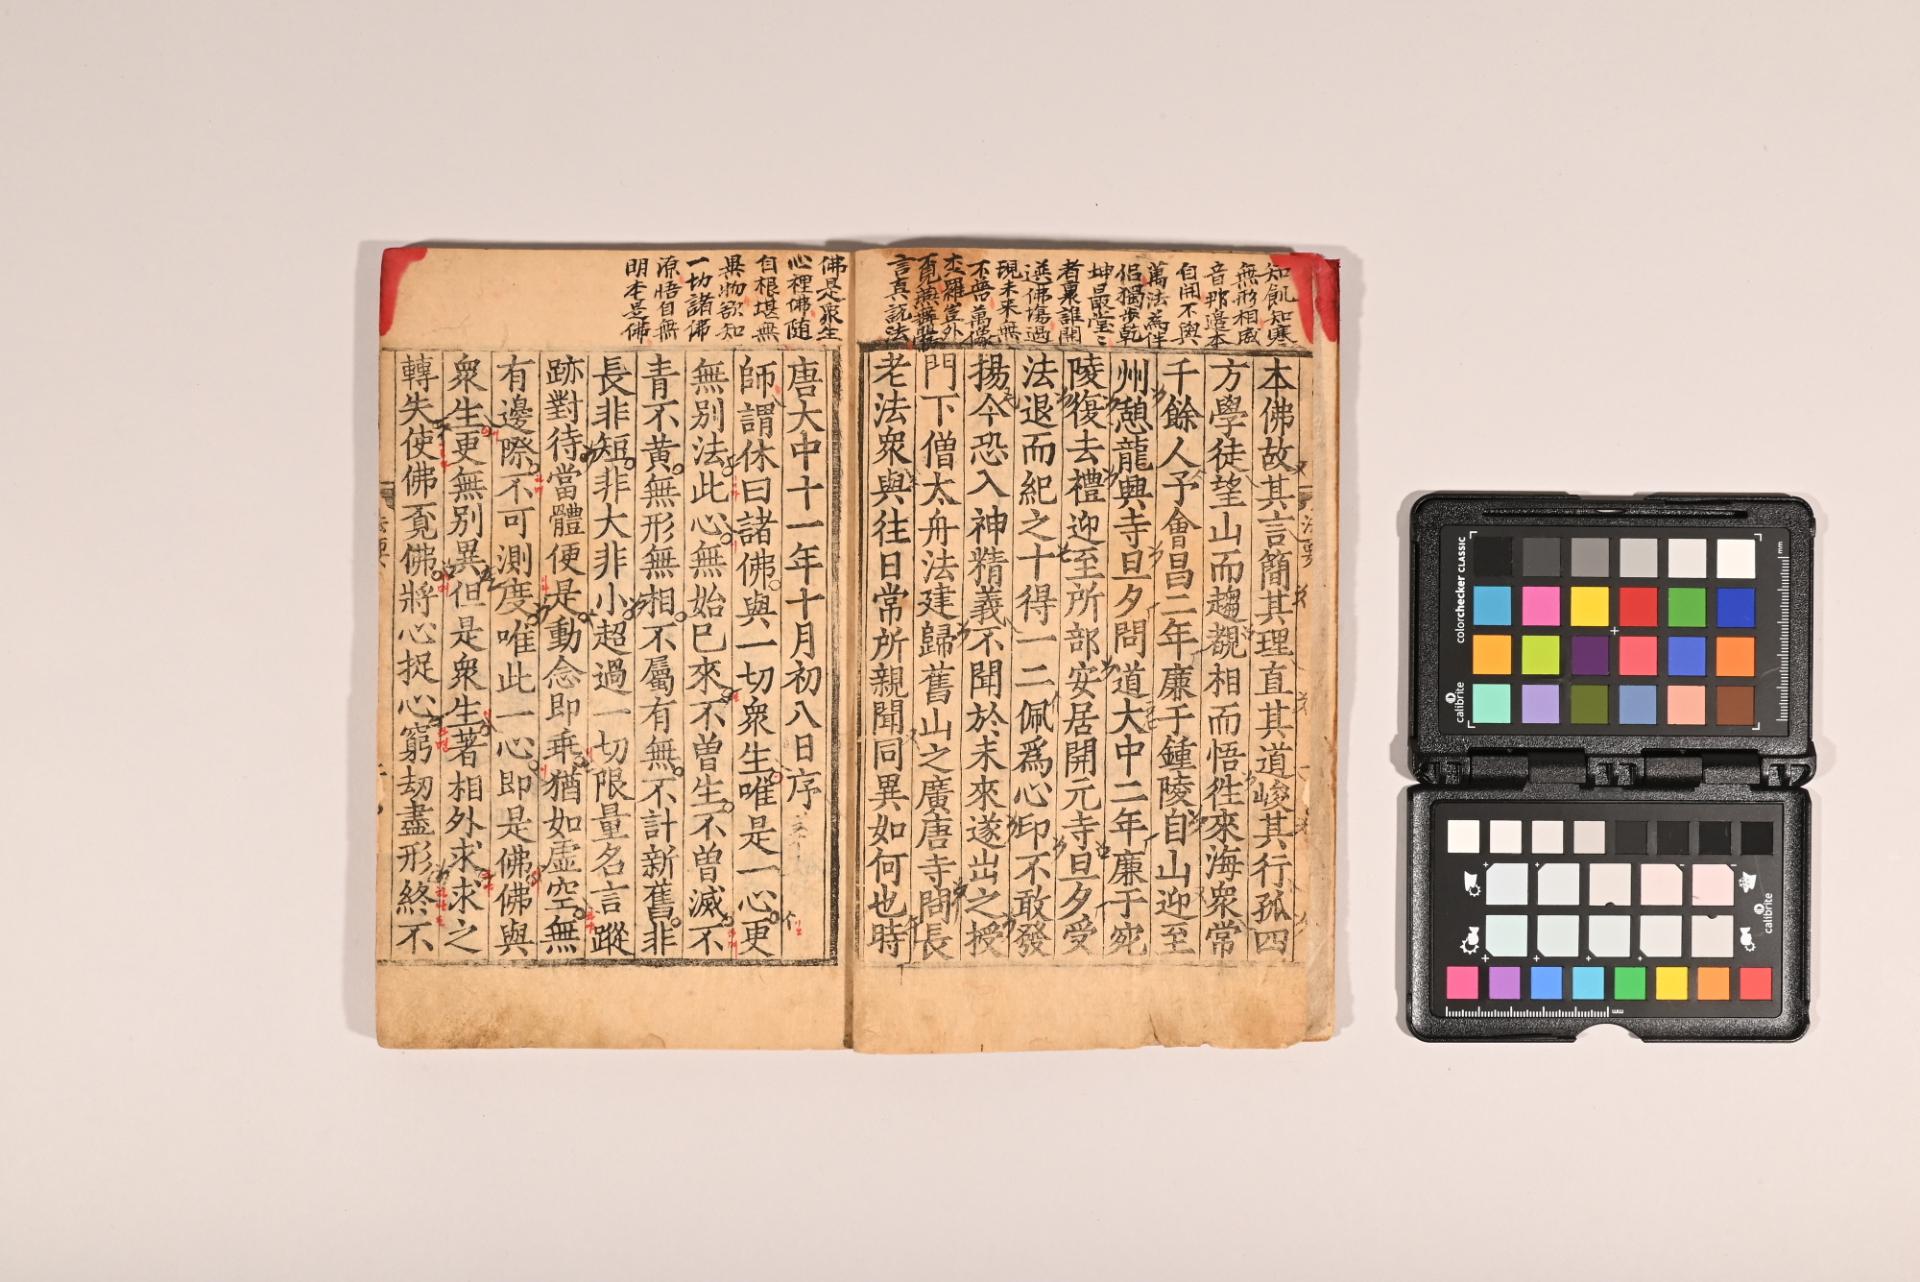 知飢知寒
無形相感
音那邊本
自開不與
萬法為伴
侶獨步乾
坤最堂〻
者裏誰開
選佛塲過
現未來無
不
言真說法
本佛故其言簡其理直其道峻其行孤四
方學徒望山而趨覩相而悟徃來海衆常
千餘人予會昌二年廉于鍾陵自山迎至
州憩龍興寺旦夕問道大中二年廉于宛
陵復去禮迎至所部安居開元寺旦夕受
法退而紀之十得一二佩爲心印不敢發
揚今恐入神精義不聞於未來遂出之授
門下僧太舟法建歸舊山之廣唐寺問長
老法衆與往日常所親聞同異如何也時
佛是衆生
心裡佛随
自根堪無
異物欲知
一切諸佛
源悟自無
明本是佛
唐大中十一年十月初八日序
師謂休曰諸佛與一切衆生唯是一心更
無別法此心無始已來不曽生不曽滅不
青不黄無形無相不屬有無不計新舊非
長非短非大非小超過一切限量名言蹤
跡對待當體便是動念即乖猶如虛空無
有邊際不可測度唯此一心即是佛佛與
衆生更無別異但是衆生著相外求求之
轉失使佛覔佛將心捉心窮劫盡形終不
法要
colorchecker CLASSIC
calibrite
mm
calibrite
mm